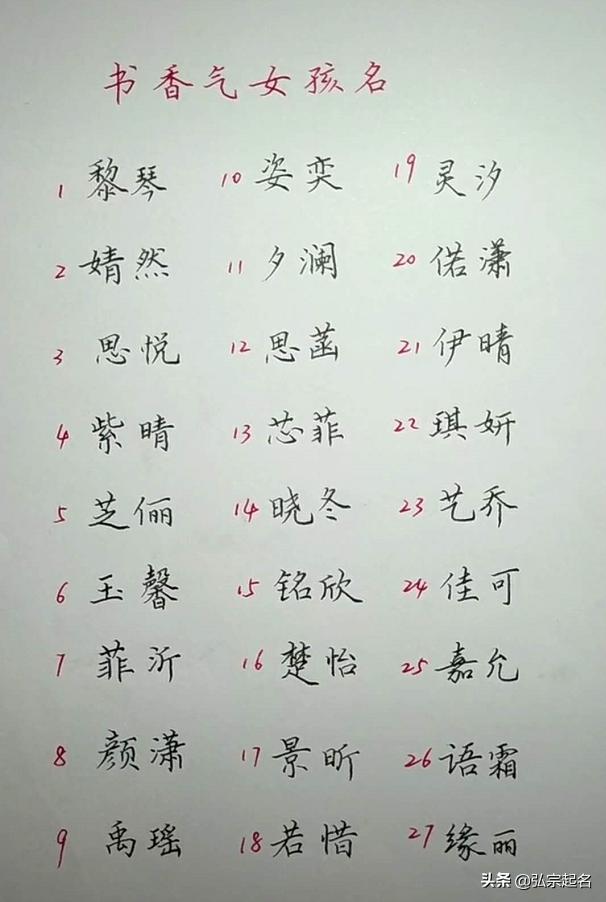 书香气女孩名
1 黎琴 10 姿奕 19 灵汐
2 婧然 11 夕澜 20 偌潇
3 思悦 12 思菡 21 伊晴
4 紫晴 13 芯菲 22 琪妍
5 芝俪 14 晓冬 23 艺乔
6 玉馨 15 铭欣 24 佳可
7 菲沂 16 楚怡 25 嘉允
8 颜潇 17 景昕 26 语霜
9 禹瑶 18 若惜 27 缘丽
头条 @弘宗起名